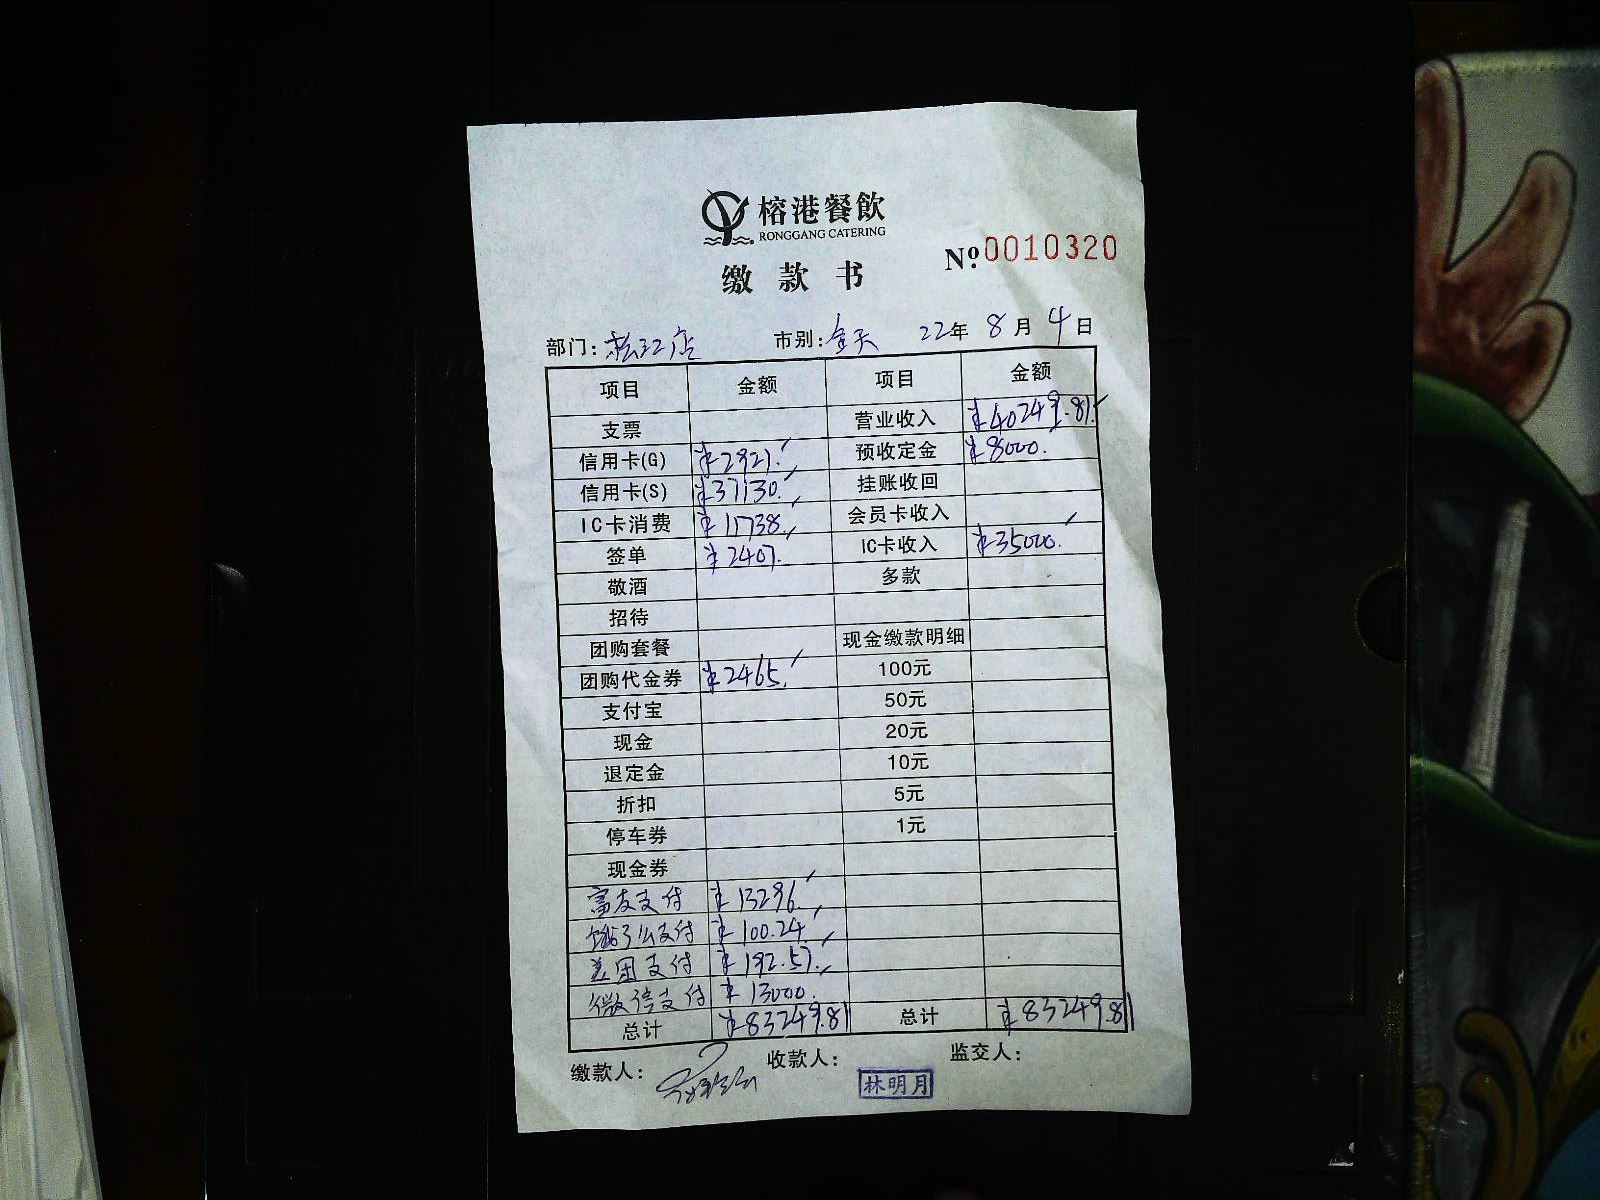 榕港餐飲
RONGGANG CATERING
缴款书 Nº.0010320
部门:松江店 市别:全天 22年8月4日
项目 金额 项目 金额
支票 营业收入 ¥40249.81
信用卡(G) ¥2921. 预收定金 ¥8000.
信用卡(S) ¥37130. 挂账收回
IC卡消费 ¥11738. 会员卡收入
签单 ¥2407. IC卡收入 ¥35000.
敬酒 多款
招待
团购套餐 现金缴款明细
团购代金券 ¥2465. 100元
支付宝 50元
现金 20元
退定金 10元
折扣 5元
停车券 1元
现金券
富友支付 ¥13296.
饿了么支付 ¥100.24
美团支付 ¥192.57.
微信支付 ¥13000.
总计 ¥83249.81 总计 ¥83249.81
缴款人: 收款人: 监交人:
林明月